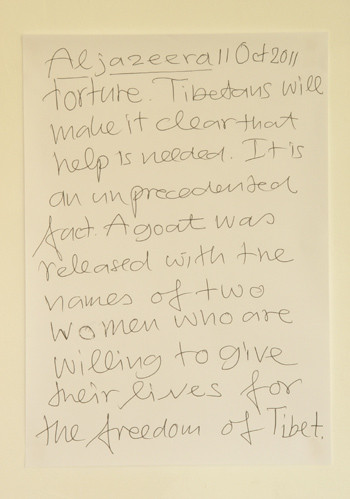 Aljazeera 11 Oct 2011
torture. Tibetans will
make it clear that
help is needed. It is
an unprecedented
fact. A goat was
released with the
names of two
women who are
willing to give
their lives for
the freedom of Tibet.